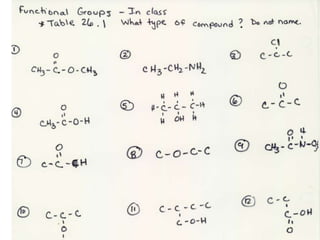 Functional Groups - In class
* Table 26.1 What type of compound? Do not name.
① O
CH₃-C-O-CH₃
② CH₃-CH₂-NH₂
③ Cl
C-C-C
④ O
CH₃-C-O-H
⑤ H H H
H-C-C-C-H
H OH H
⑥ O
C-C-C
⑦ O
C-C-H
⑧ C-O-C-C
⑨ O H
CH₃-C-N-
⑩ C-C-C
O
⑪ C-C-C-C
C-O-H
⑫ C-C
C-OH
O